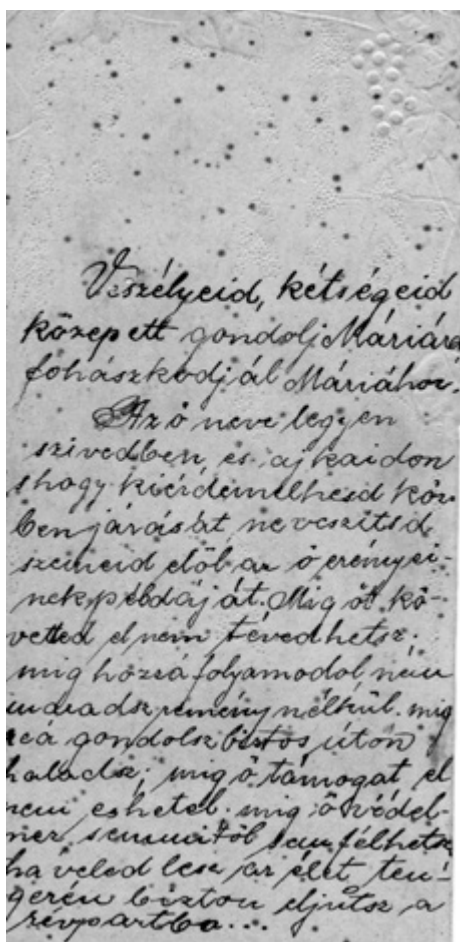 Veszélyeid, kétségeid
közepett gondolj Máriára
fohászkodjál Máriához.
Az ő neve legyen
szivedben és ajkaidon
s hogy kiérdemelhesd köz-
benjárását, ne veszitsd
szemeid elől az ő erényei-
nek példáját. Mig őt kö-
veted el nem tévedhetsz.
mig hozzá folyamodol, nem
maradsz remény nélkül. mig
reá gondolsz biztos úton
haladsz; mig ő támogat el
nem eshetel. mig ő védel-
mez semmitől sem félhetsz
ha veled lesz az élet ten-
gerén bizton eljutsz a
révpartba...